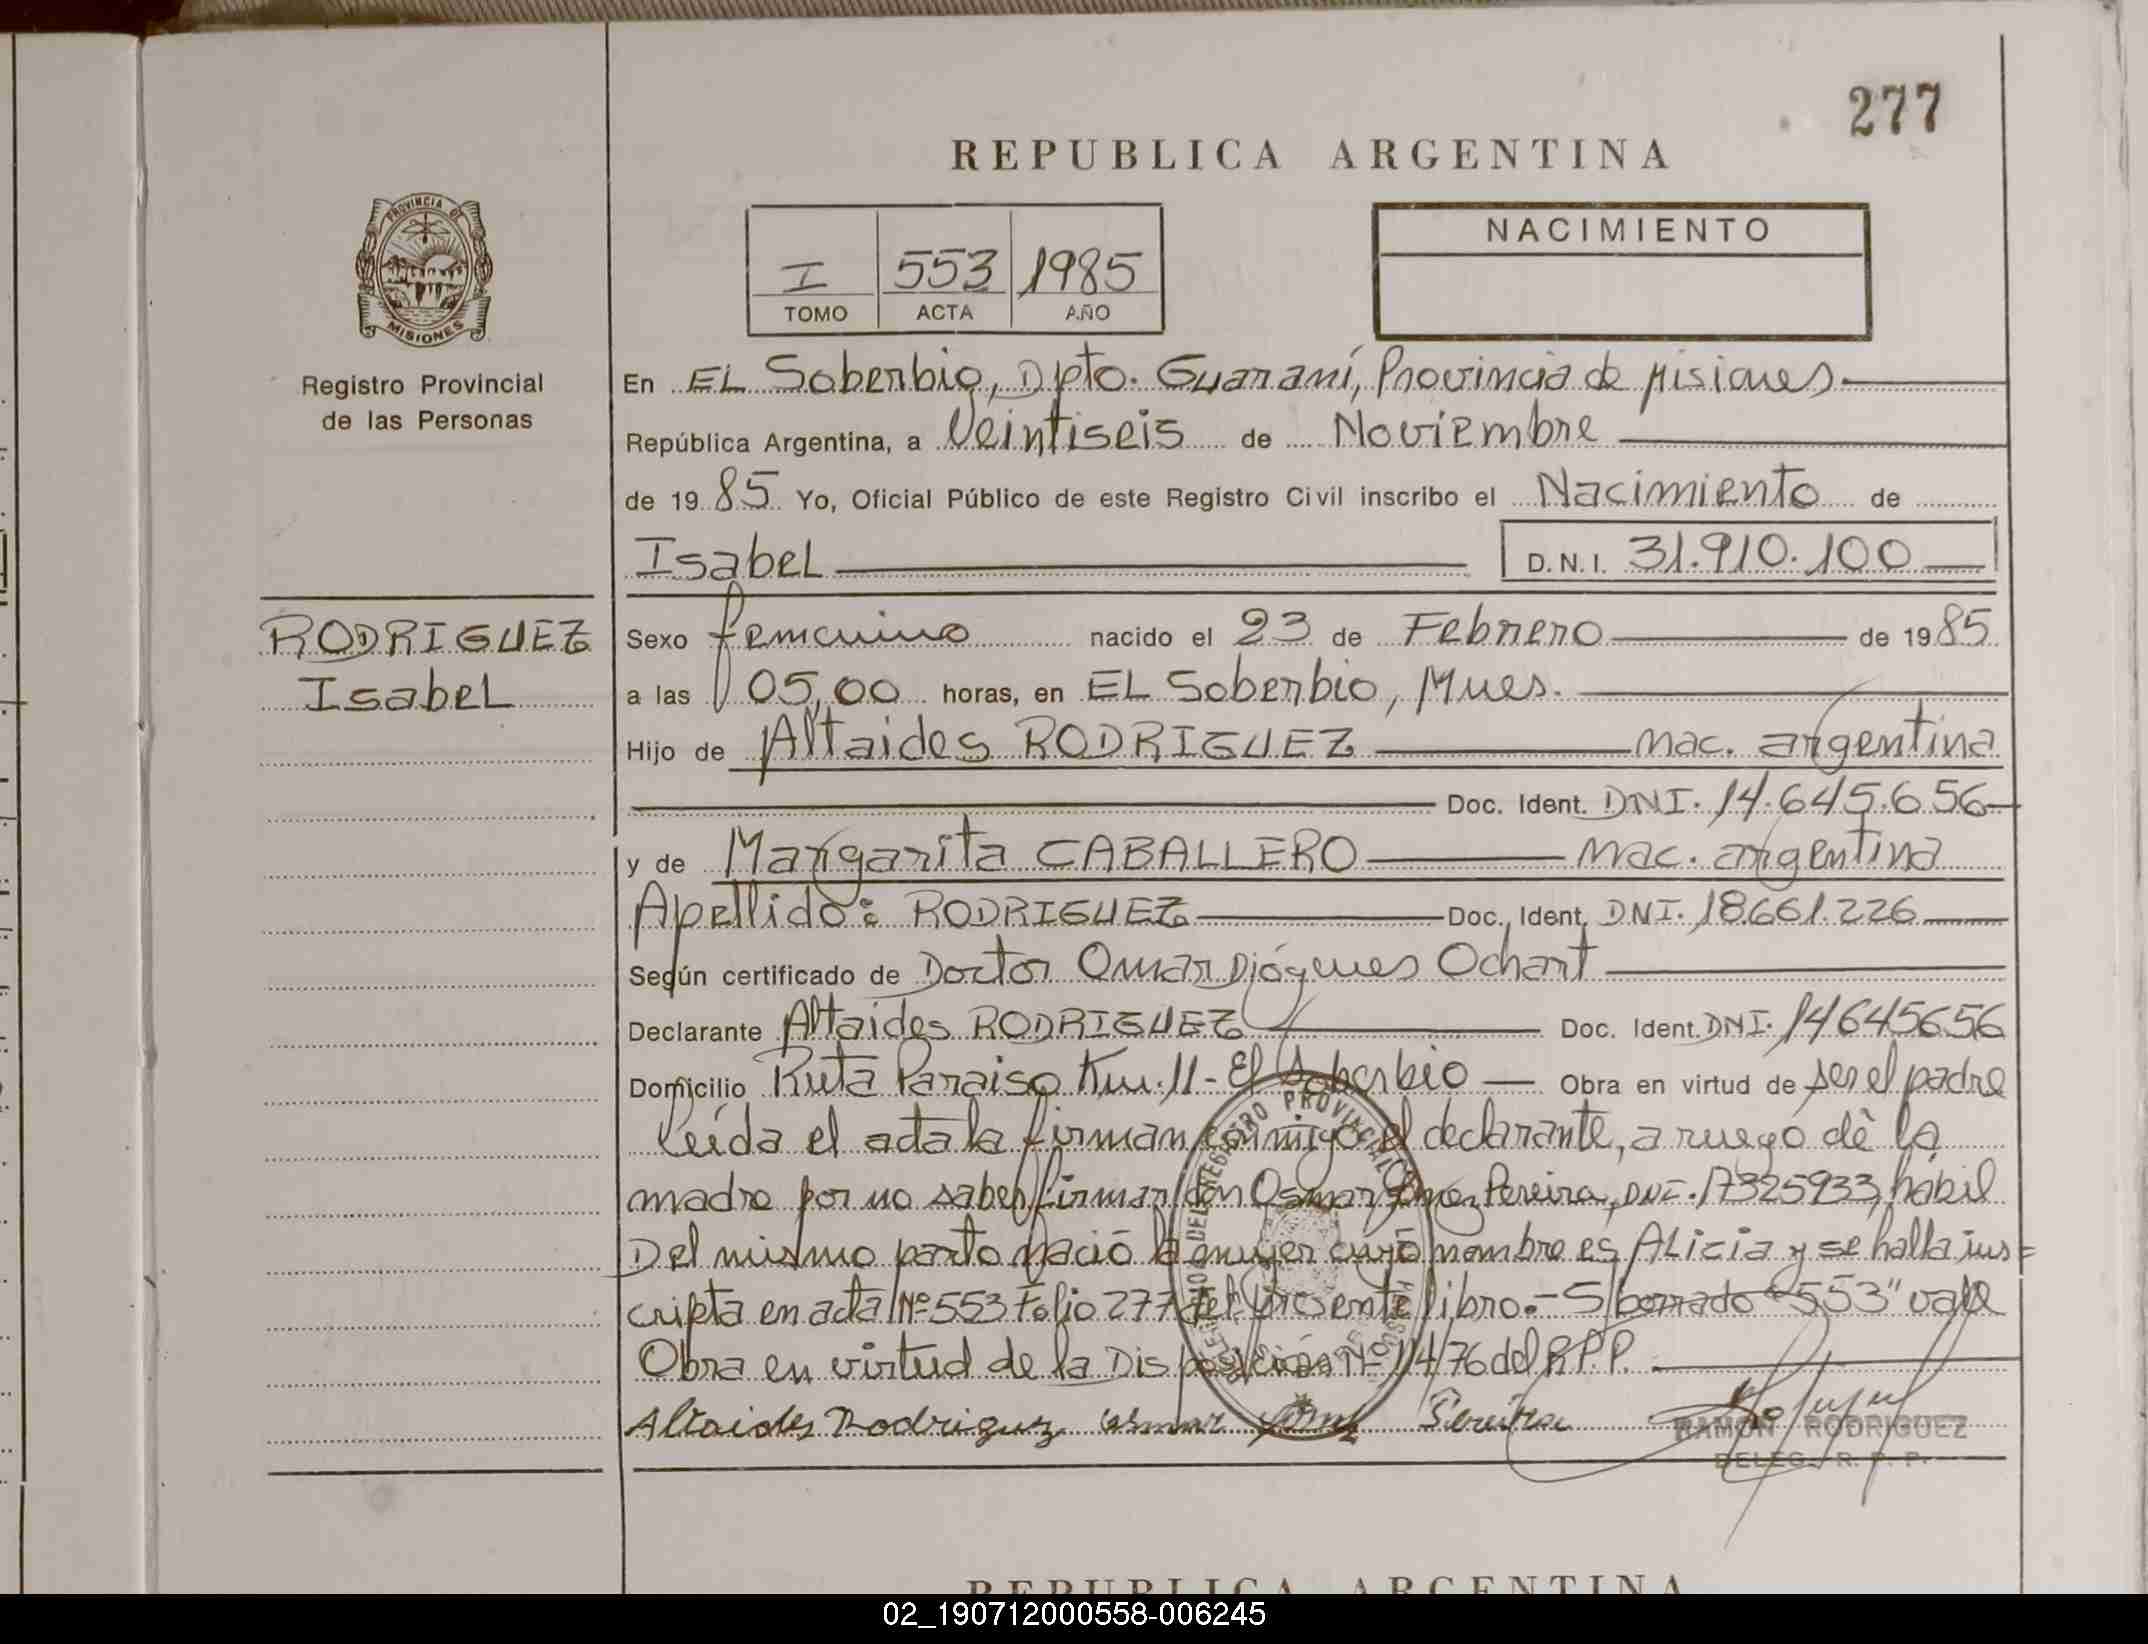 277
REPUBLICA ARGENTINA
PROVINCIA DE
MISIONES
Registro Provincial
de las Personas
I 553 1985
TOMO ACTA AÑO
NACIMIENTO
En EL Soberbio, Dpto. Guaraní, Provincia de Misiones
República Argentina, a Veintiseis de Noviembre
de 1985 Yo, Oficial Público de este Registro Civil inscribo el Nacimiento de
Isabel D.N.I. 31.910.100
RODRIGUEZ
Isabel
Sexo femenino nacido el 23 de Febrero de 1985
a las 05,00 horas, en EL Soberbio, Mnes.
Hijo de Altaides RODRIGUEZ nac. argentina
Doc. Ident. DNI. 14.645.656
y de Margarita CABALLERO nac. argentina
Apellido: RODRIGUEZ Doc. Ident. DNI. 18.661.226
Según certificado de Doctor Omar Diógenes Ochart
Declarante Altaides RODRIGUEZ Doc. Ident. DNI. 14645656
Domicilio Ruta Paraiso Km. 11 - El Soberbio Obra en virtud de ser el padre
Leída el acta la firman conmigo el declarante, a ruego de la
madre por no saber firmar don Osmar Pereira, DNI. 17325933, hábil
Del mismo parto nació la mujer cuyo nombre es ALicia y se halla ins=
cripta en acta Nº 553 Folio 277 del presente libro.- S/borrado "553" vale
Obra en virtud de la Disposición Nº 114/76 del R.P.P.
REGISTRO PROVINCIAL
Altaides Rodriguez Osmar Pereira
RAMON RODRIGUEZ
DELEG. R. P. P.
REPUBLICA ARGENTINA
02_190712000558-006245